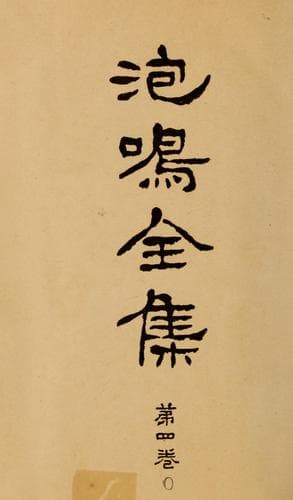 泡鳴全集
第四卷